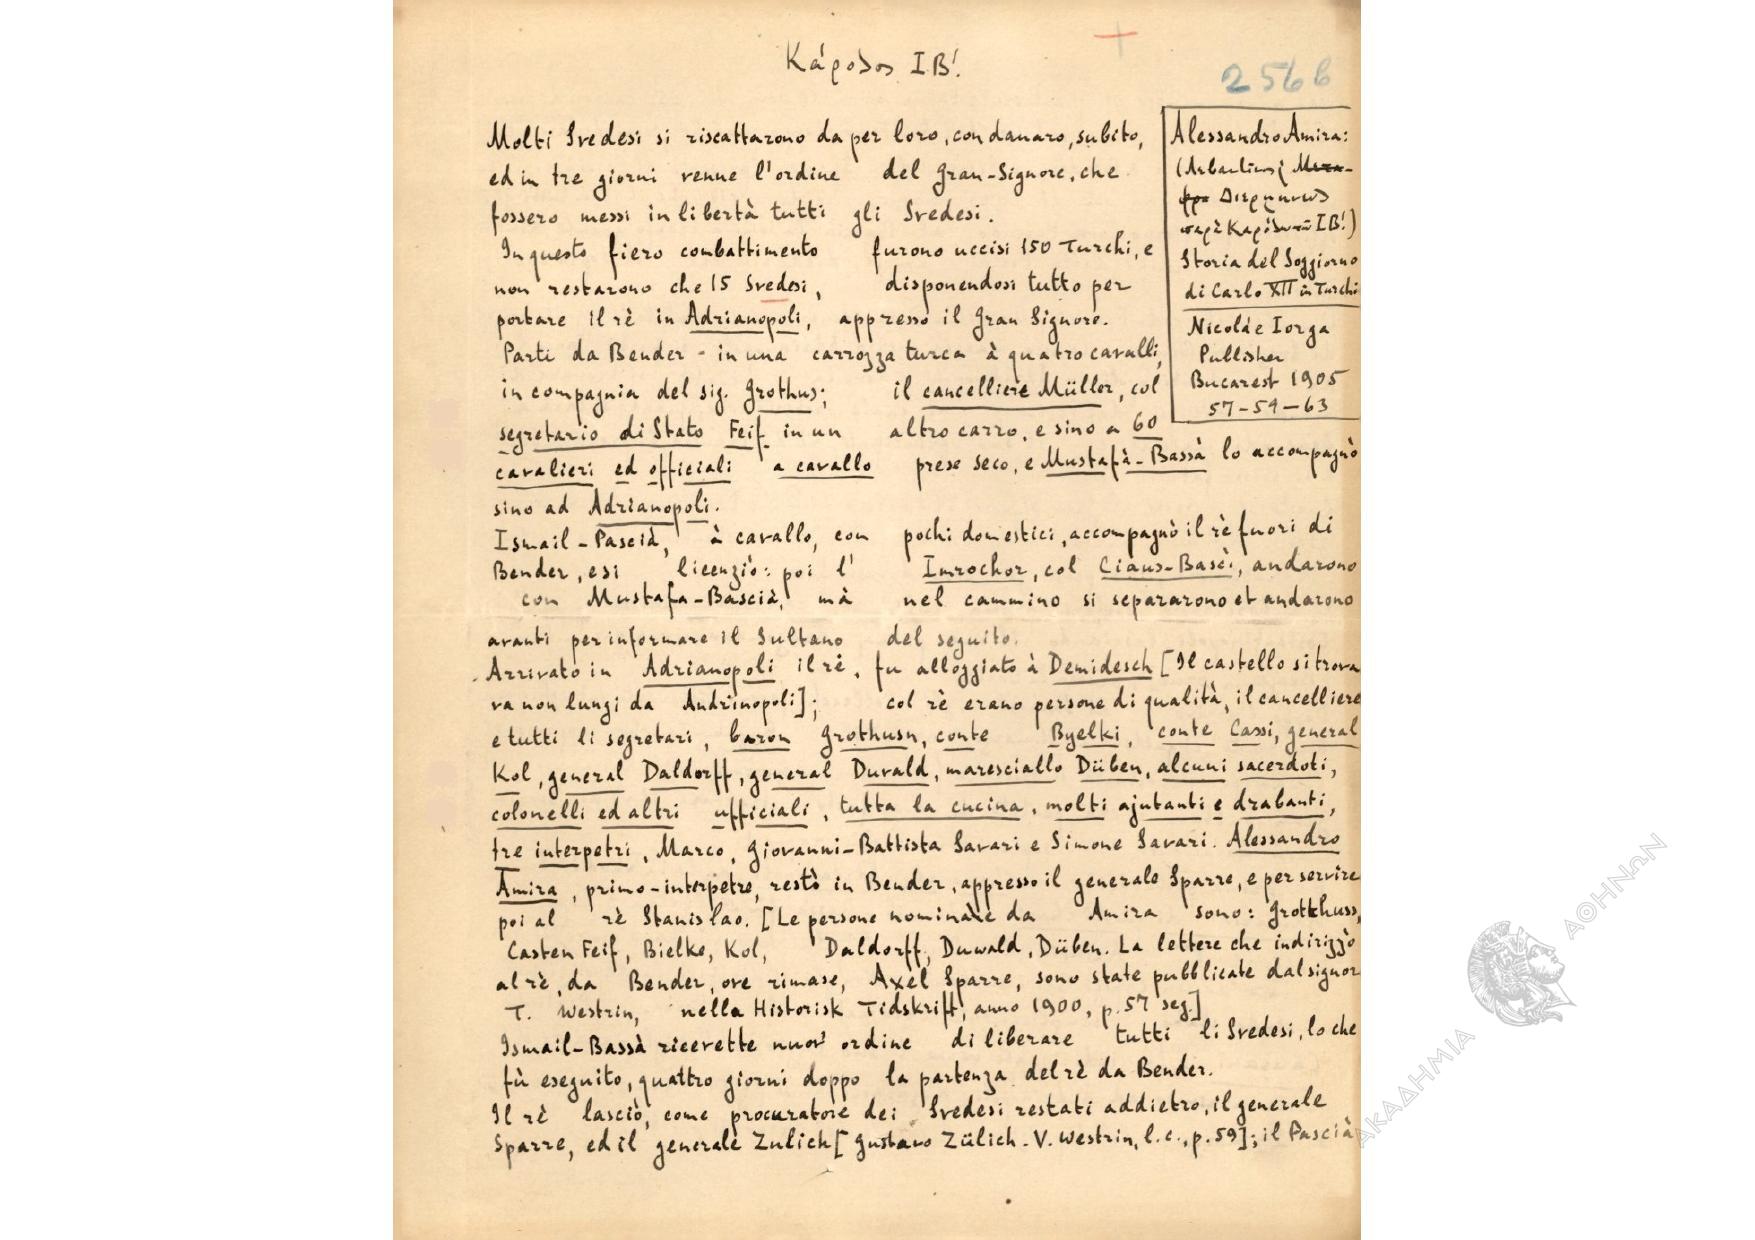 Κάρολος ΙΒ'.
256 b
Molti Svedesi si riscattarono da per loro, con danaro, subito,
ed in tre giorni venne l'ordine del Gran-Signore, che
fossero messi in libertà tutti gli Svedesi.
In questo fiero combattimento furono uccisi 150 Turchi, e
non restarono che 15 Svedesi, disponendosi tutto per
portare il rè in Adrianopoli, appresso il Gran Signore.
Parti da Bender - in una carrozza turca à quatro cavalli,
in compagnia del sig. Grothus; il cancelliere Müller, col
segretario di Stato Feif in un altro carro, e sino a 60
cavalieri ed officiali a cavallo prese seco, e Mustafà-Bassà lo accompagnò
sino ad Adrianopoli.
Ismail-Pascià, à cavallo, con pochi domestici, accompagnò il rè fuori di
Bender, e si licenziò: poi l' Imrochor, col Ciaus-Basci, andarono
con Mustafa-Bascià, mà nel cammino si separarono et andarono
avanti per informare il Sultano del seguito.
Arrivato in Adrianopoli il rè, fu alloggiato à Demidesch [Il castello si trova
va non lungi da Andrinopoli]; col rè erano persone di qualità, il cancelliere
e tutti li segretari, baron Grothusn, conte Byelki, conte Cassi, general
Kol, general Daldorff, general Duvald, maresciallo Düben, alcuni sacerdoti,
colonelli ed altri ufficiali, tutta la cucina, molti ajutanti e drabanti,
tre interpetri, Marco, Giovanni-Battista Savari e Simone Savari. Alessandro
Amira, primo-interpetre, restò in Bender, appresso il generale Sparre, e per servire
poi al rè Stanislao. [Le persone nominate da Amira sono: Grotthuss,
Casten Feif, Bielke, Kol, Daldorff, Duwald, Düben. La lettere che indirizzò
al rè, da Bender, ove rimase, Axel Sparre, sono state pubblicate dal signor
T. Westrin, nella Historisk Tidskrift, anno 1900, p. 57 seg.]
Ismail-Bassà ricevette nuov' ordine di liberare tutti li Svedesi, lo che
fù eseguito, quattro giorni doppo la partenza del rè da Bender.
Il rè lasciò, come procuratore dei Svedesi restati addietro, il generale
Sparre, ed il generale Zulich [Gustavo Zülich. V. Westrin, l. c., p. 59]; il Pascià
Alessandro Amira:
Διερμηνεὺς
παρὰ Καρόλω τῶ ΙΒ'.)
Storia del Soggiorno
di Carlo XII in Turchi
Nicolae Iorga
Publisher
Bucarest 1905
57-59-63
ΑΚΑΔΗΜΙΑ ΑΘΗΝΩΝ